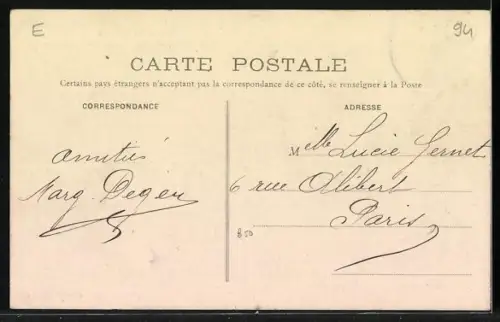 E
94
CARTE POSTALE
Certains pays étrangers n'acceptant pas la correspondance de ce côté, se renseigner à la Poste
CORRESPONDANCE
ADRESSE
Amitiés
Marg. Degen
M lle Lucie Gernet
6 rue Alibert
Paris
B50